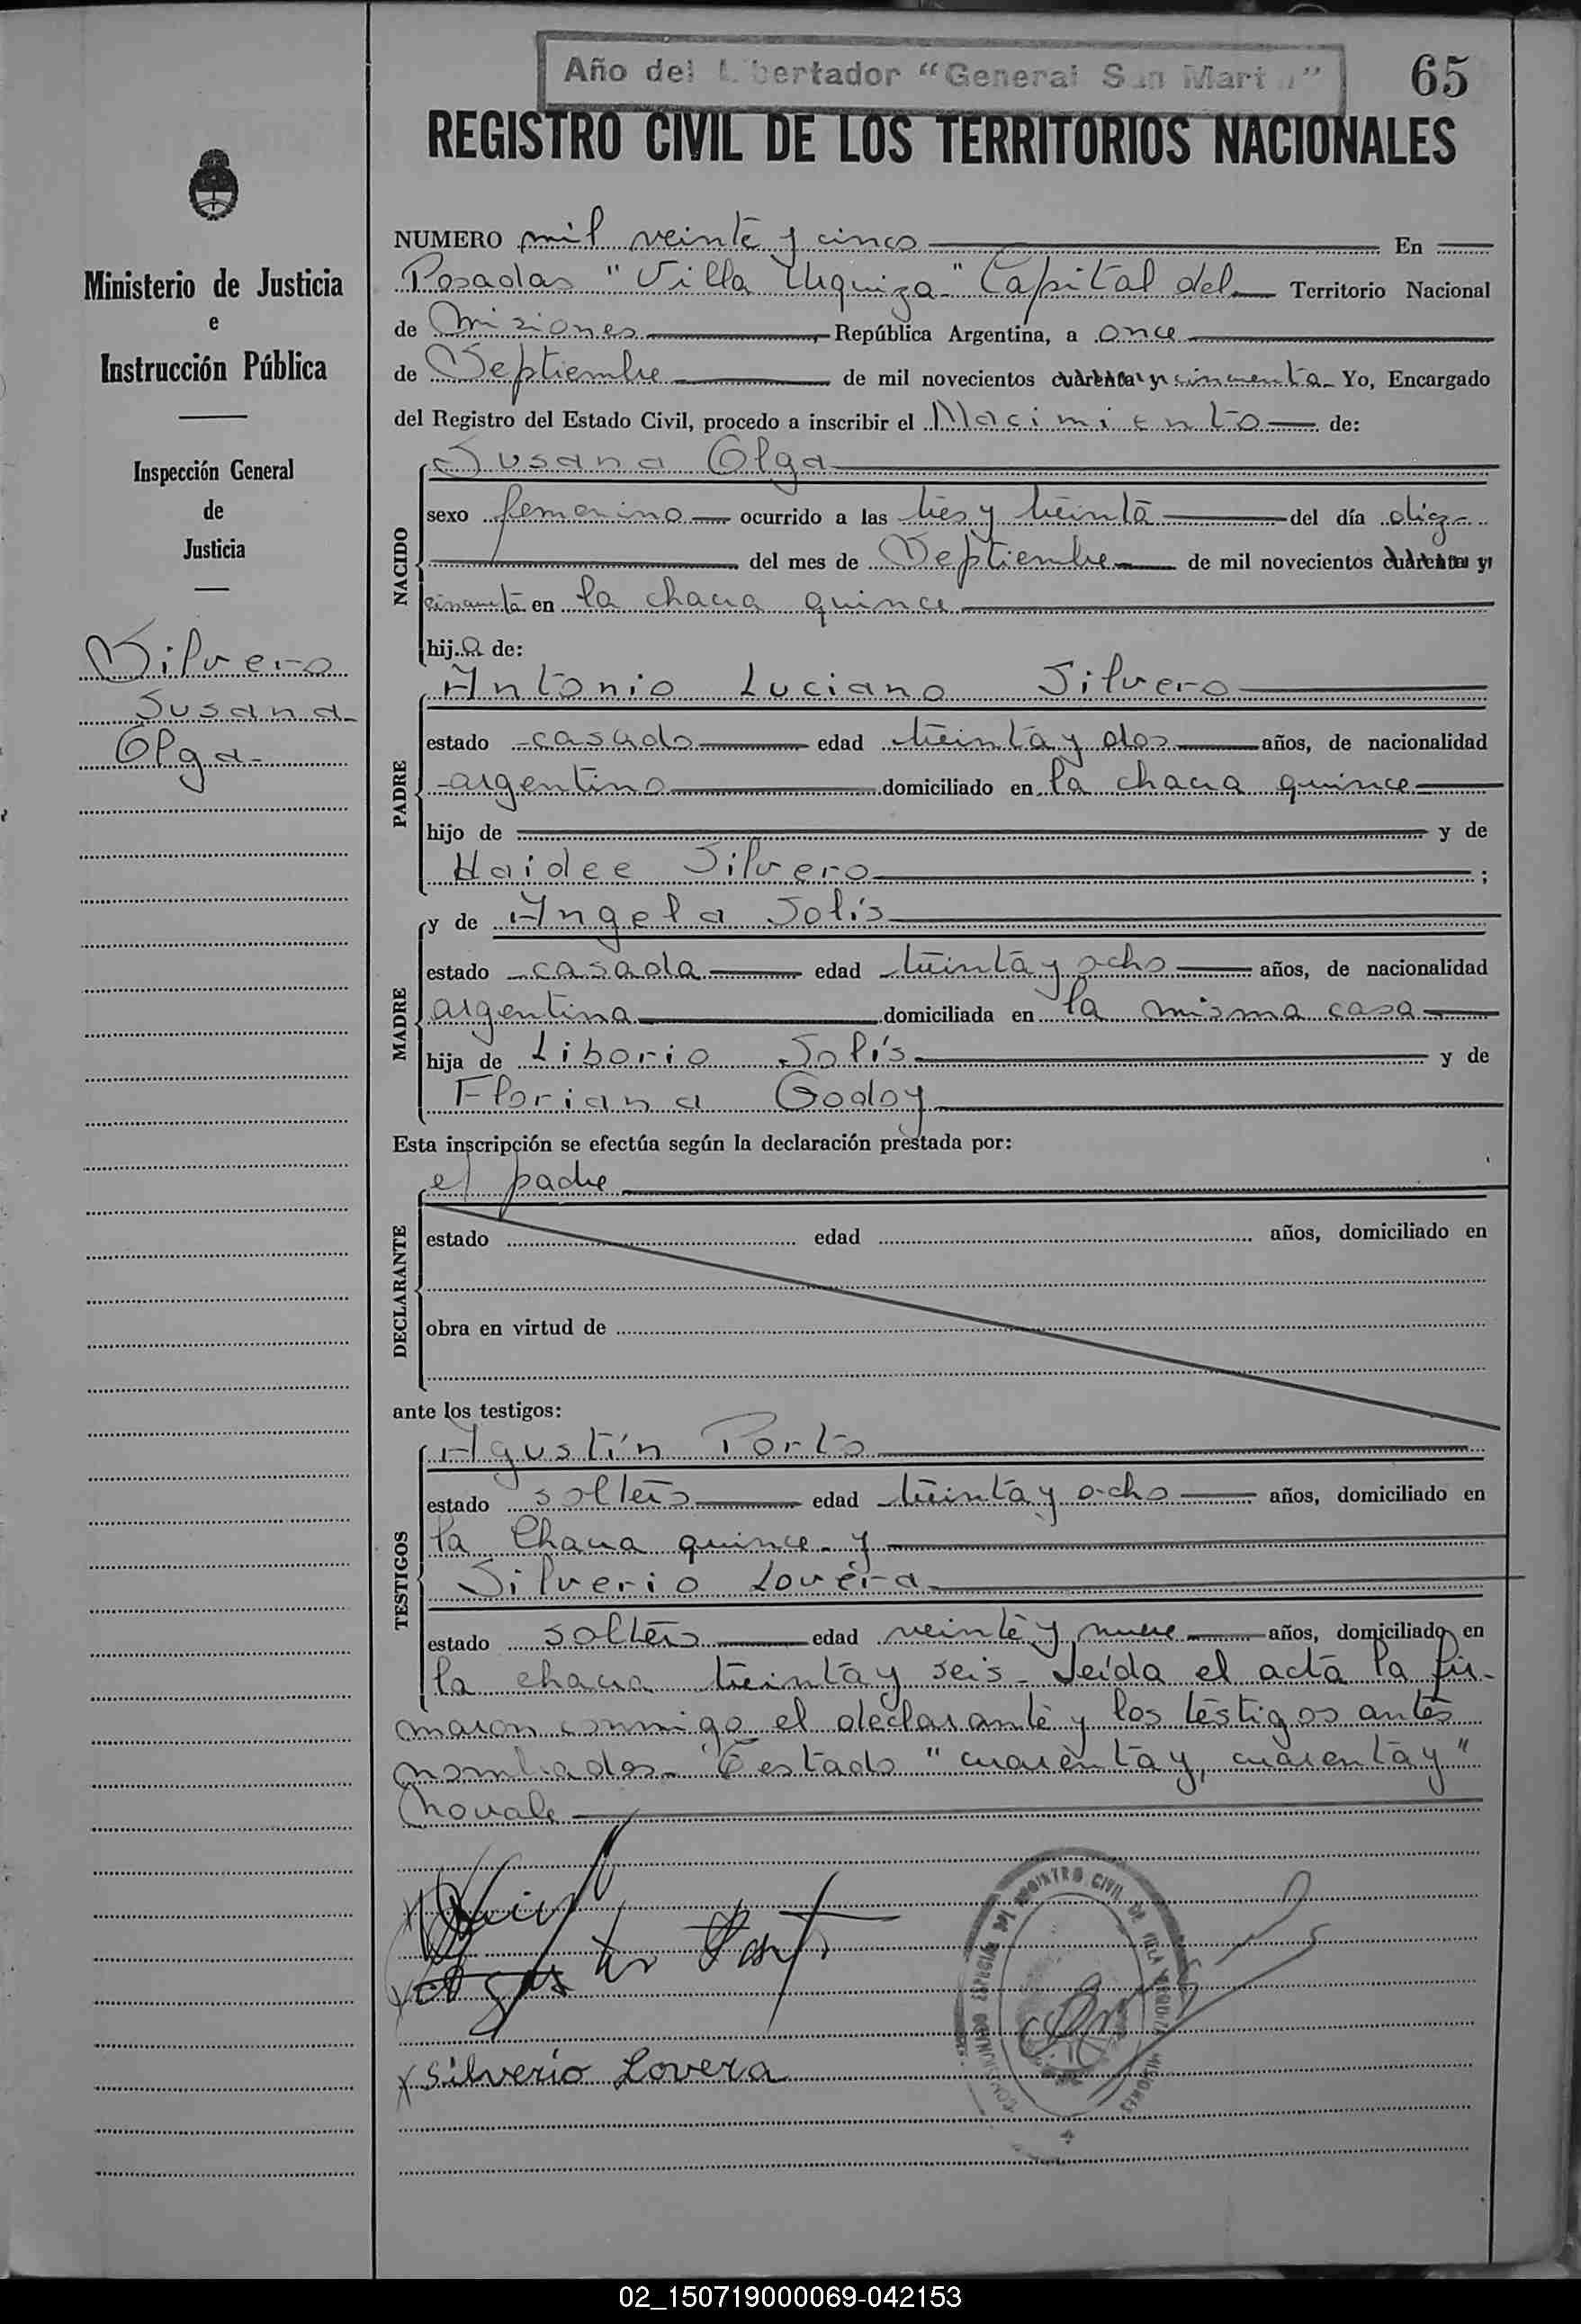 Año del Libertador "General San Martín"
65
REGISTRO CIVIL DE LOS TERRITORIOS NACIONALES
Ministerio de Justicia
e
Instrucción Pública
Inspección General
de
Justicia
Silvero
Susana
Olga
NUMERO mil veinte y cinco En
Posadas "Villa Urquiza" Capital del Territorio Nacional
de Misiones República Argentina, a once
de Septiembre de mil novecientos cuarenta y cincuenta Yo, Encargado
del Registro del Estado Civil, procedo a inscribir el Nacimiento de:
NACIDO
Susana Olga
sexo femenino ocurrido a las tres y treinta del día diez
del mes de Septiembre de mil novecientos cuarenta y
cincuenta en la chacra quince
hija de:
PADRE
Antonio Luciano Silvero
estado casado edad treinta y dos años, de nacionalidad
argentino domiciliado en la chacra quince
hijo de y de
Haidee Silvero ;
MADRE
y de Angela Solís
estado casada edad treinta y ocho años, de nacionalidad
argentina domiciliada en la misma casa
hija de Liborio Solís y de
Floriana Godoy
Esta inscripción se efectúa según la declaración prestada por:
DECLARANTE
el padre
estado edad años, domiciliado en
obra en virtud de
ante los testigos:
TESTIGOS
Agustín Porto
estado soltero edad treinta y ocho años, domiciliado en
la Chacra quince y
Silverio Lovera
estado soltero edad veinte y nueve años, domiciliado en
la chacra treinta y seis - Leída el acta la fir-
maron conmigo el declarante y los testigos antes
nombrados - Testado "cuarenta y, cuarenta y"
No vale
REGISTRO CIVIL DE VILLA URQUIZA MISIONES
x Silverio Lovera
02_150719000069-042153